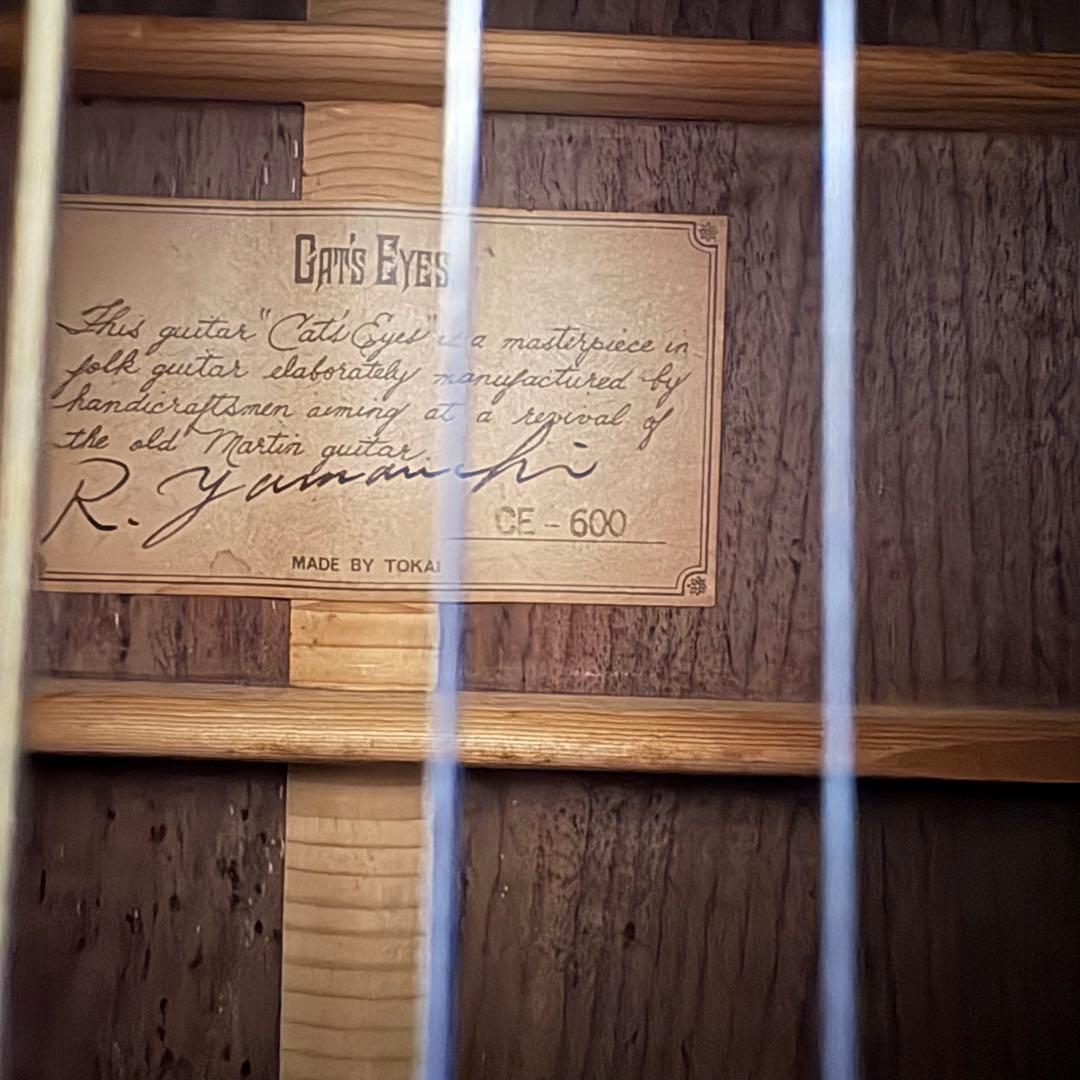 CAT'S EYES
This guitar "Cat's Eyes" is a masterpiece in
folk guitar elaborately manufactured by
handicraftsmen aiming at a revival of
the old Martin guitar.
R. Yamauchi
CE - 600
MADE BY TOKAI